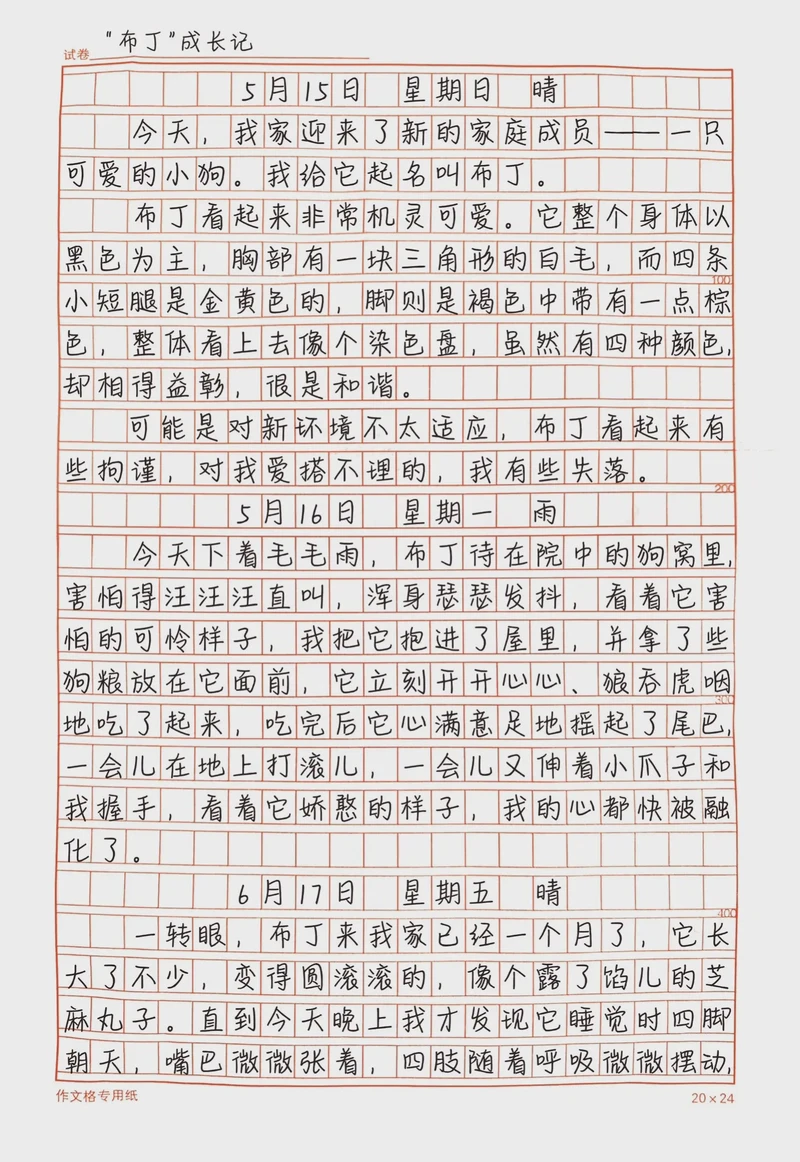 "布丁"成长记
试卷
5月15日 星期日 晴
今天，我家迎来了新的家庭成员——一只
可爱的小狗。我给它起名叫布丁。
布丁看起来非常机灵可爱。它整个身体以
黑色为主，胸部有一块三角形的白毛，而四条
100
小短腿是金黄色的，脚则是褐色中带有一点棕
色，整体看上去像个染色盘，虽然有四种颜色，
却相得益彰，很是和谐。
可能是对新环境不太适应，布丁看起来有
些拘谨，对我爱搭不理的，我有些失落。
200
5月16日 星期一 雨
今天下着毛毛雨，布丁待在院中的狗窝里，
害怕得汪汪汪直叫，浑身瑟瑟发抖，看着它害
怕的可怜样子，我把它抱进了屋里，并拿了些
狗粮放在它面前，它立刻开开心心、狼吞虎咽
300
地吃了起来，吃完后它心满意足地摇起了尾巴，
一会儿在地上打滚儿，一会儿又伸着小爪子和
我握手，看着它娇憨的样子，我的心都快被融
化了。
6月17日 星期五 晴
400
一转眼，布丁来我家已经一个月了，它长
大了不少，变得圆滚滚的，像个露了馅儿的芝
麻丸子。直到今天晚上我才发现它睡觉时四脚
朝天，嘴巴微微张着，四肢随着呼吸微微摆动，
作文格专用纸
20×24